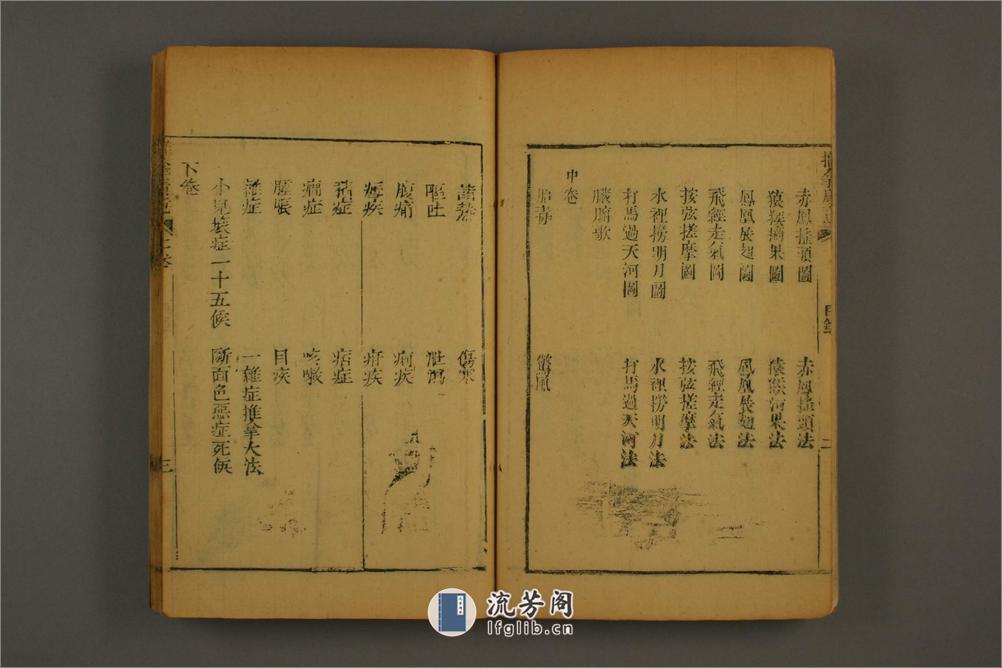 赤鳳搖頭圖 赤鳳搖頭法
猿猴摘果圖 猿猴摘果法
鳳凰展翅圖 鳳凰展翅法
飛經走氣圖 飛經走氣法
按弦搓摩圖 按弦搓摩法
水裡撈明月圖 水裡撈明月法
打馬過天河圖 打馬過天河法
臟腑歌
中卷
胎毒 驚風
目錄 二
諸熱 傷寒
嘔吐 泄瀉
腹痛 痢疾
瘧疾 疳疾
痞症 痘症
癎症 咳嗽
腫脹 目疾
雜症 一雜症推拿大法
小兒壞症一十五候 斷面色惡症死候
下卷
三
流芳阁
lfglib.cn